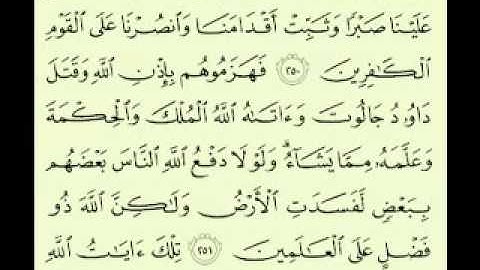 عَلَيْنَا صَبْرًا وَثَبِّتْ أَقْدَامَنَا وَٱنصُرْنَا عَلَى ٱلْقَوْمِ
ٱلْكَـٰفِرِينَ ٢٥٠ فَهَزَمُوهُم بِإِذْنِ ٱللَّهِ وَقَتَلَ
دَاوُۥدُ جَالُوتَ وَءَاتَىٰهُ ٱللَّهُ ٱلْمُلْكَ وَٱلْحِكْمَةَ
وَعَلَّمَهُۥ مِمَّا يَشَآءُ ۗ وَلَوْلَا دَفْعُ ٱللَّهِ ٱلنَّاسَ بَعْضَهُم
بِبَعْضٍ لَّفَسَدَتِ ٱلْأَرْضُ وَلَـٰكِنَّ ٱللَّهَ ذُو
فَضْلٍ عَلَى ٱلْعَـٰلَمِينَ ٢٥١ تِلْكَ ءَايَـٰتُ ٱللَّهِ